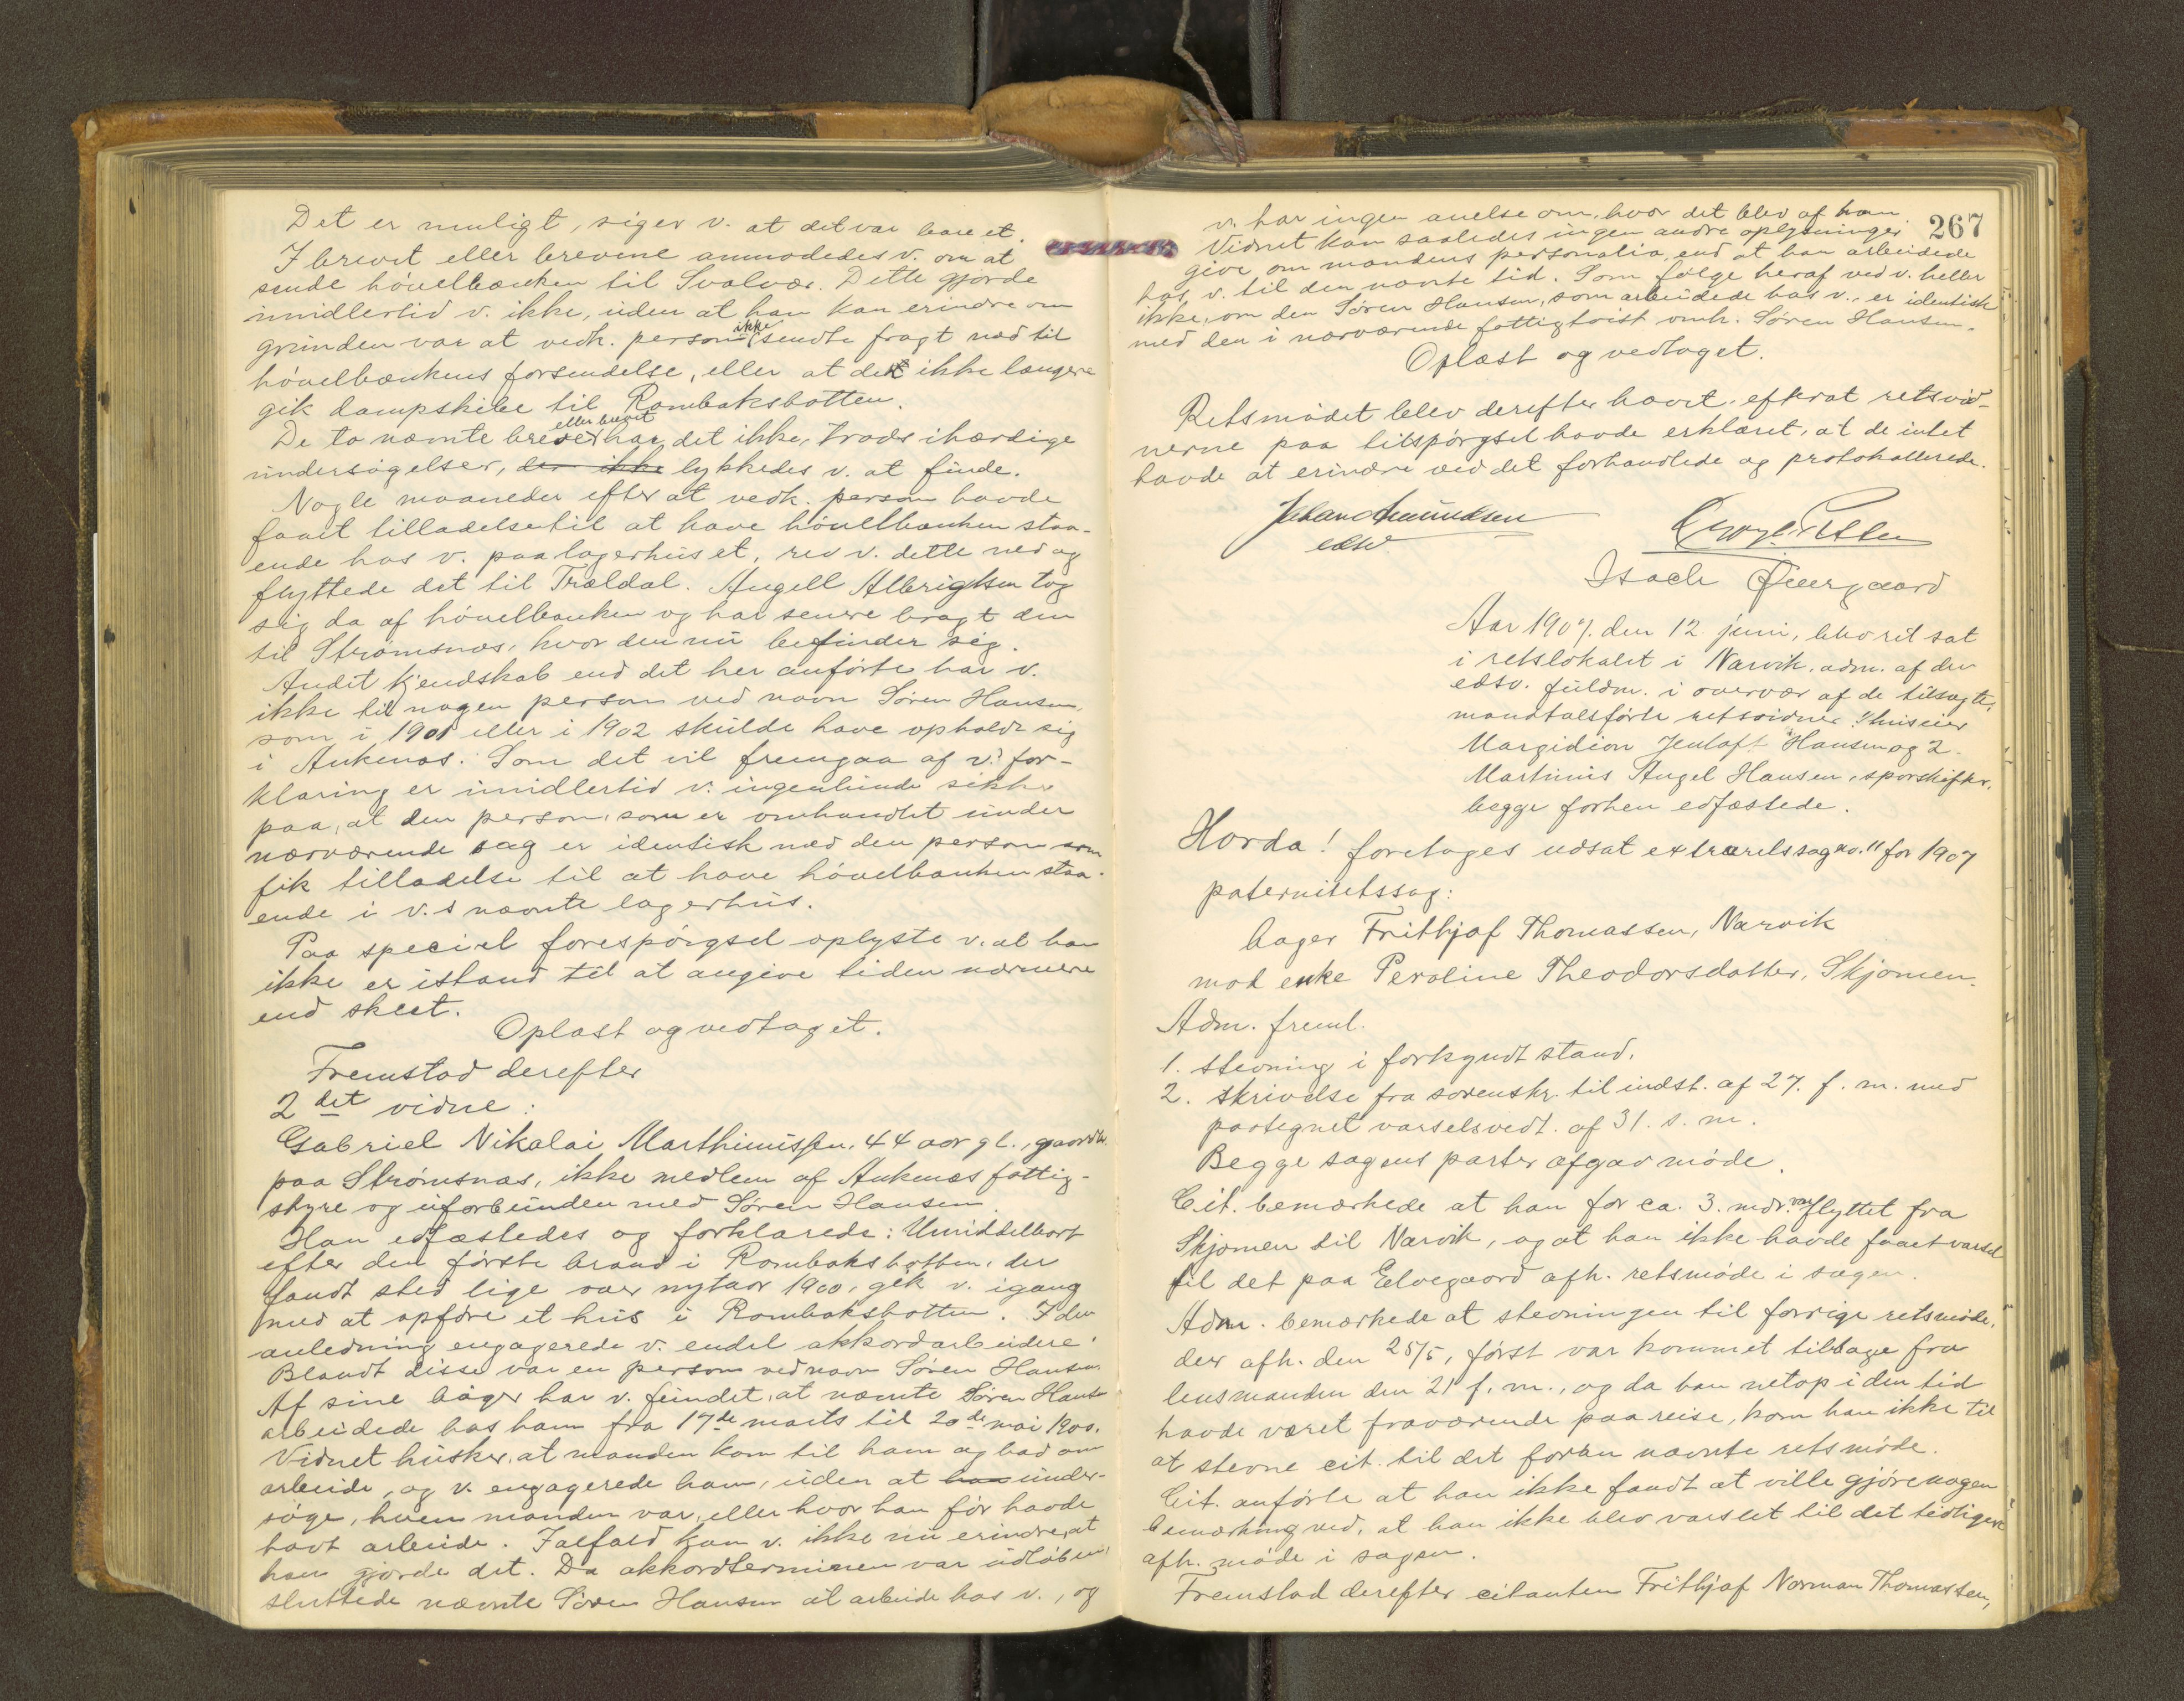 Det er muligt, siger v. at det var bare et.
I brevet eller brevene anmodedes v. om at
sende høvelbænken til Svolvær. Dette gjorde
imidlertid v. ikke, uden at han kan erindre om
grunden var at vedk. person ikke sendte fragt ned til
høvelbænkens forsendelse, eller at det ikke længere
gik dampskibe til Rombaksbotten.
De to nævnte breve eller brevet har det ikke, trods ihærdige
undersøgelser, der ikke lykkedes v. at finde.
Nogle maaneder efter at vedk. person havde
faaet tilladelse til at have høvelbænken staa-
ende hos v. paa lagerhuset, rev v. dette ned og
flyttede det til Trældal. Angell Albrigtsen tog
sig da af høvelbænken og har senere bragt den
til Strømsnæs, hvor den nu befinder sig.
Andet kjendskab end det her anførte har v.
ikke til nogen person ved navn Søren Hansen,
som i 1901 eller i 1902 skulde have opholdt sig
i Ankenæs. Som det vil fremgaa af v.s for-
klaring er imidlertid v. ingenlunde sikker
paa, at den person, som er omhandlet under
nærværende sag er identisk med den person som
fik tilladelse til at have høvelbænken staa-
ende i v.s nævnte lagerhus.
Paa speciel forespørgsel oplyste v. at han
ikke er istand til at angive tiden nærmere
end skeet.
Oplæst og vedtaget.
Fremstod derefter
2det vidne:
Gabriel Nikolai Marthinussen, 44 aar gl., gaardbr.
paa Strømsnæs, ikke medlem af Ankenæs fattig-
styre og uforbunden med Søren Hansen.
Han edfæstedes og forklarede: Umiddelbart
efter den første brand i Rombaksbotten, der
fandt sted lige over nytaar 1900, gik v. igang
med at opføre et hus i Rombaksbotten. I den
anledning engagerede v. endel akkordarbeidere.
Blandt disse var en person ved navn Søren Hansen.
Af sine bøger har v. fundet, at nævnte Søren Hansen
arbeidede hos ham fra 17de marts til 20de mai 1900.
Vidnet husker, at manden kom til ham og bad om
arbeide, og v. engagerede ham, uden at han under-
søge, hvem manden var, eller hvor han før havde
havt arbeide. Ialfald kan v. ikke nu erindre, at
han gjorde det. Da akkordterminen var udløben,
sluttede nævnte Søren Hansen at arbeide hos v., og
267
v. har ingen anelse om, hvor det blev af ham.
Vidnet kan saaledes ingen andre oplysninger
give om mandens personalia, end at han arbeidede
hos v. til den nævnte tid. Som følge heraf ved v. heller
ikke, om den Søren Hansen, som arbeidede hos v., er identisk
med den i nærværende fattigtvist omh. Søren Hansen.
Oplæst og vedtaget.
Retsmødet blev derefter hævet, efterat retsvid-
nerne paa tilspørgsel havde erklæret, at de intet
havde at erindre ved det forhandlede og protokollerede.
Johan Amundsen
edsv.
Isach Øiergaard
Aar 1907. den 12 juni, blev ret sat
i retslokalet i Narvik, adm. af den
edsv. fuldm. i overvær af de tilsagte,
mandtalsførte retsvidner: 1. huseier
Margidion Jentoft Hansen og 2.
Martinus Angel Hansen, sporskifter.
begge forhen edfæstede.
Hvorda! foretages udsat extraretssag no. 11 for 1907
paternitetssag:
bager Frithjof Thomassen, Narvik
mod enke Peroline Theodorsdatter, Skjomen.
Adm. freml.
1. stevning i forkyndt stand.
2. skrivelse fra sorenskr. til indst. af 27. f. m. med
paategnet varselsvedt. af 31. s. m.
Begge sagens parter afgav møde.
Cit. bemærkede at han for ca. 3. mdr. var flyttet fra
Skjomen til Narvik, og at han ikke havde faaet varsel
til det paa Elvegaard afh. retsmøde i sagen.
Adm. bemærkede at stevningen til forrige retsmøde,
der afh. den 25/5, først var kommet tilbage fra
lensmanden den 21 f. m., og da han netop i den tid
havde været fraværende paa reise, kom han ikke til
at stevne cit. til det foran nævnte retsmøde.
Cit. anførte at han ikke fandt at ville gjøre nogen
bemærkning ved, at han ikke blev varslet til det tidligere
afh. møde i sagen.
Fremstod derefter citanten Frithjof Norman Thomassen,